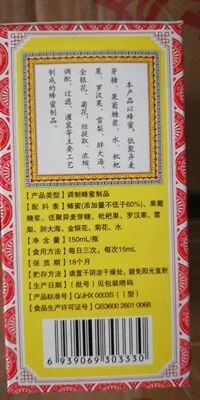 本产品以蜂蜜、低聚异麦
芽糖、果葡糖浆、水、枇杷
果、罗汉果、雪梨、胖大海、
金银花、菊花、经提取、浓缩、
调配、过滤、灌装等主要工艺
制成的蜂蜜制品
【产品类型】调制蜂蜜制品
【配料表】蜂蜜(添加量不低于60%)、果葡
糖浆、低聚异麦芽糖、枇杷果、罗汉果、雪
梨、胖大海、金银花、菊花、水
【规格】150mL/瓶
【食用方法】每日三次，每次15mL
【保质期】18个月
【贮存方法】请置于阴凉干燥处，避免阳光直射
【生产日期】(批号)见包装喷码
【产品标准号】Q/JHX 0003S(Ⅰ型)
【食品生产许可证号】QS3600 2601 0068
6 939069 303330